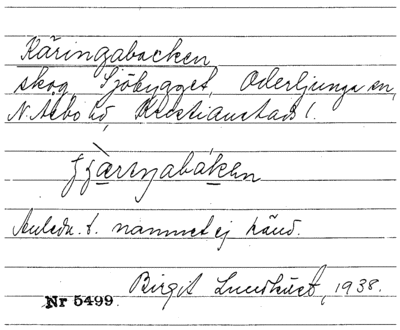 Käringabacken
skog, Sjöbygget, Oderljunga sn,
N. Åsbo hd, Kristianstads l.
Anledn. t. namnet ej känd.
Birgit Lundkvist, 1938.
Nr 5499